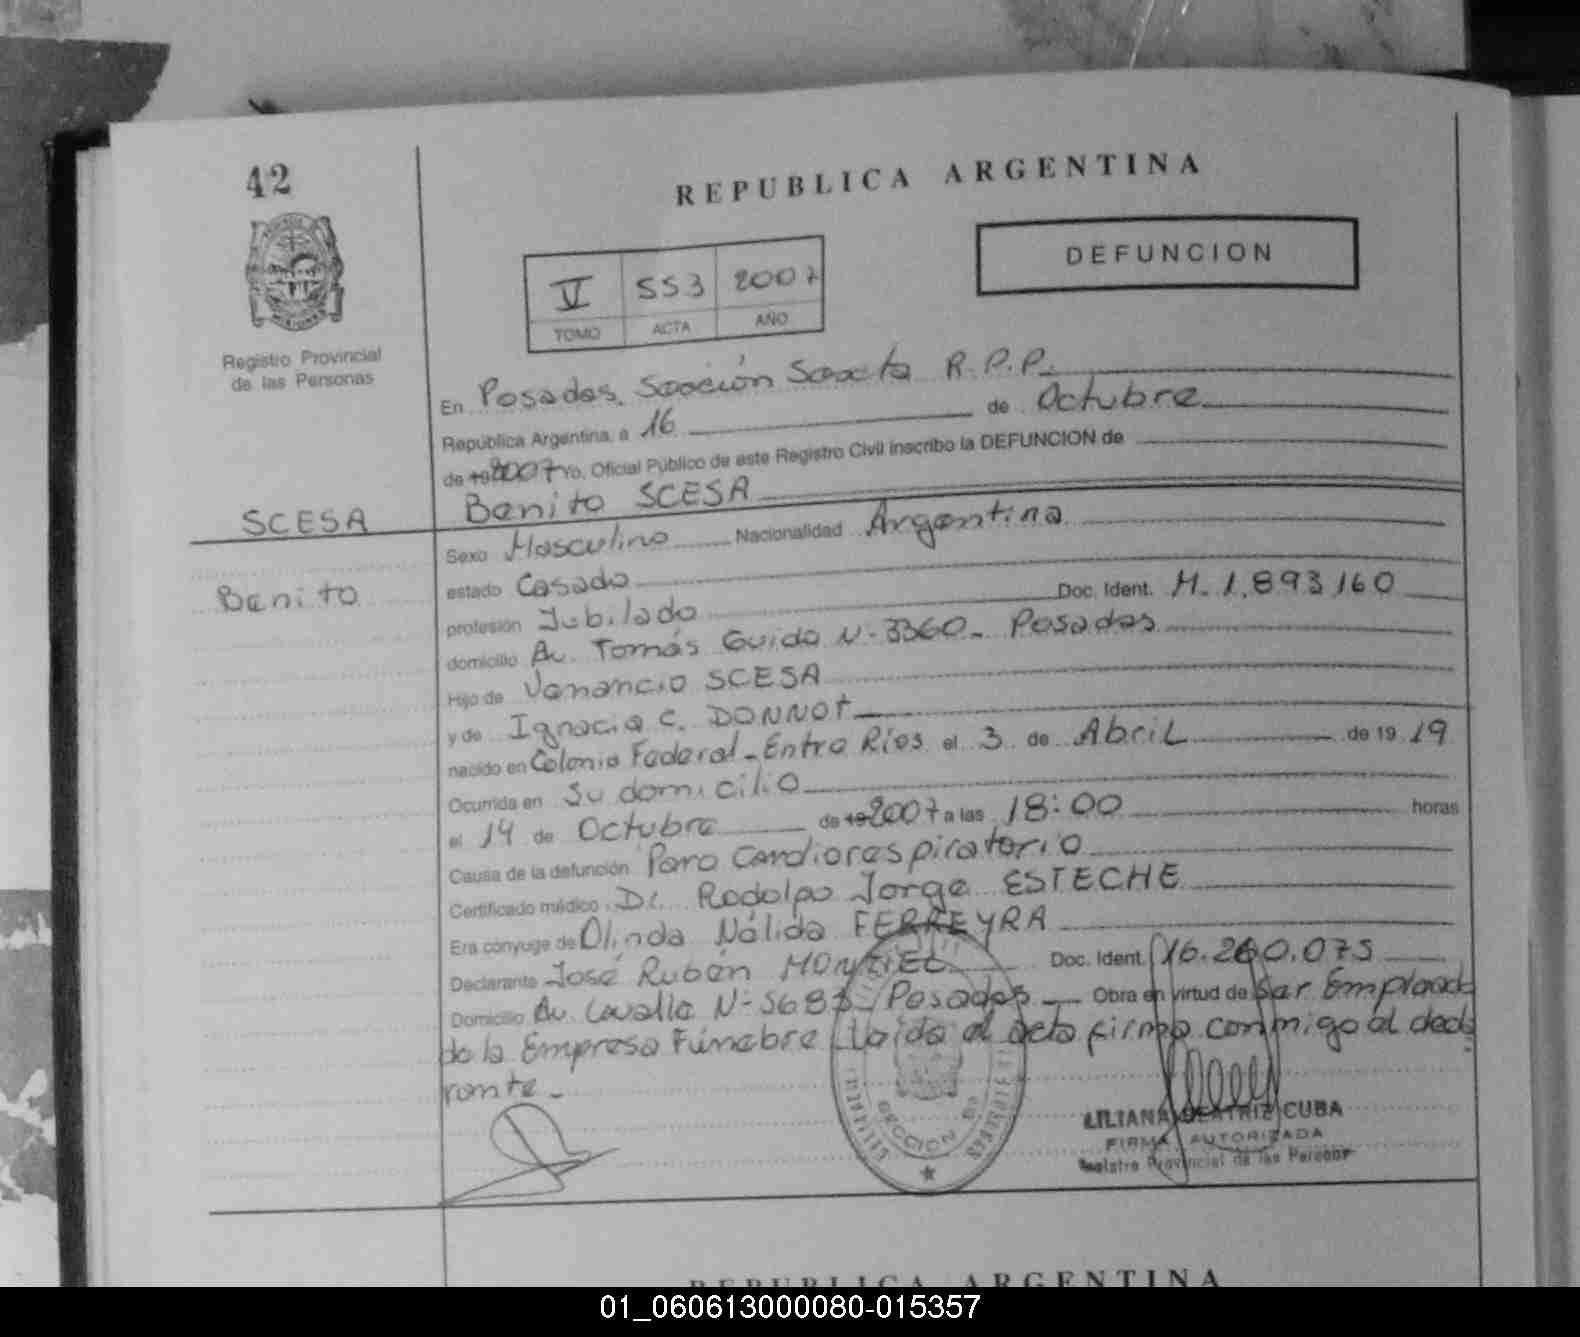 42
REPUBLICA ARGENTINA
DEFUNCION
V 553 2007
TOMO ACTA AÑO
Registro Provincial
de las Personas
En Posadas, Sección Sexta R.P.P.
República Argentina, a 16 de Octubre
de 19 2007 Yo, Oficial Público de este Registro Civil inscribo la DEFUNCION de
Benito SCESA
SCESA
Benito
Sexo Masculino Nacionalidad Argentina
estado Casado
profesión Jubilado Doc. Ident. M. 1.893160
domicilio Av. Tomás Guido N- 3360- Posadas
Hijo de Venancio SCESA
y de Ignacia C. DONNOT
nacido en Colonia Federal-Entre Ríos el 3 de Abril de 19 19
Ocurrida en su domicilio
el 14 de Octubre de 19 2007 a las 18:00 horas
Causa de la defunción Paro Cardiorespiratorio
Certificado médico Dr. Rodolpo Jorge ESTECHE
Era cónyuge de Olinda Nélida FERREYRA
Declarante José Rubén MONTIEL Doc. Ident. 16.260.075
Domicilio Av. Lavalle N- 5683 Posados Obra en virtud de Ser Emplead
de la Empresa Fúnebre Leída el acta firma conmigo el decla
rante.-
SECCION
LILIANA BEATRIZ CUBA
FIRMA AUTORIZADA
Registro Provincial de las Personas
REPUBLICA ARGENTINA
01_060613000080-015357